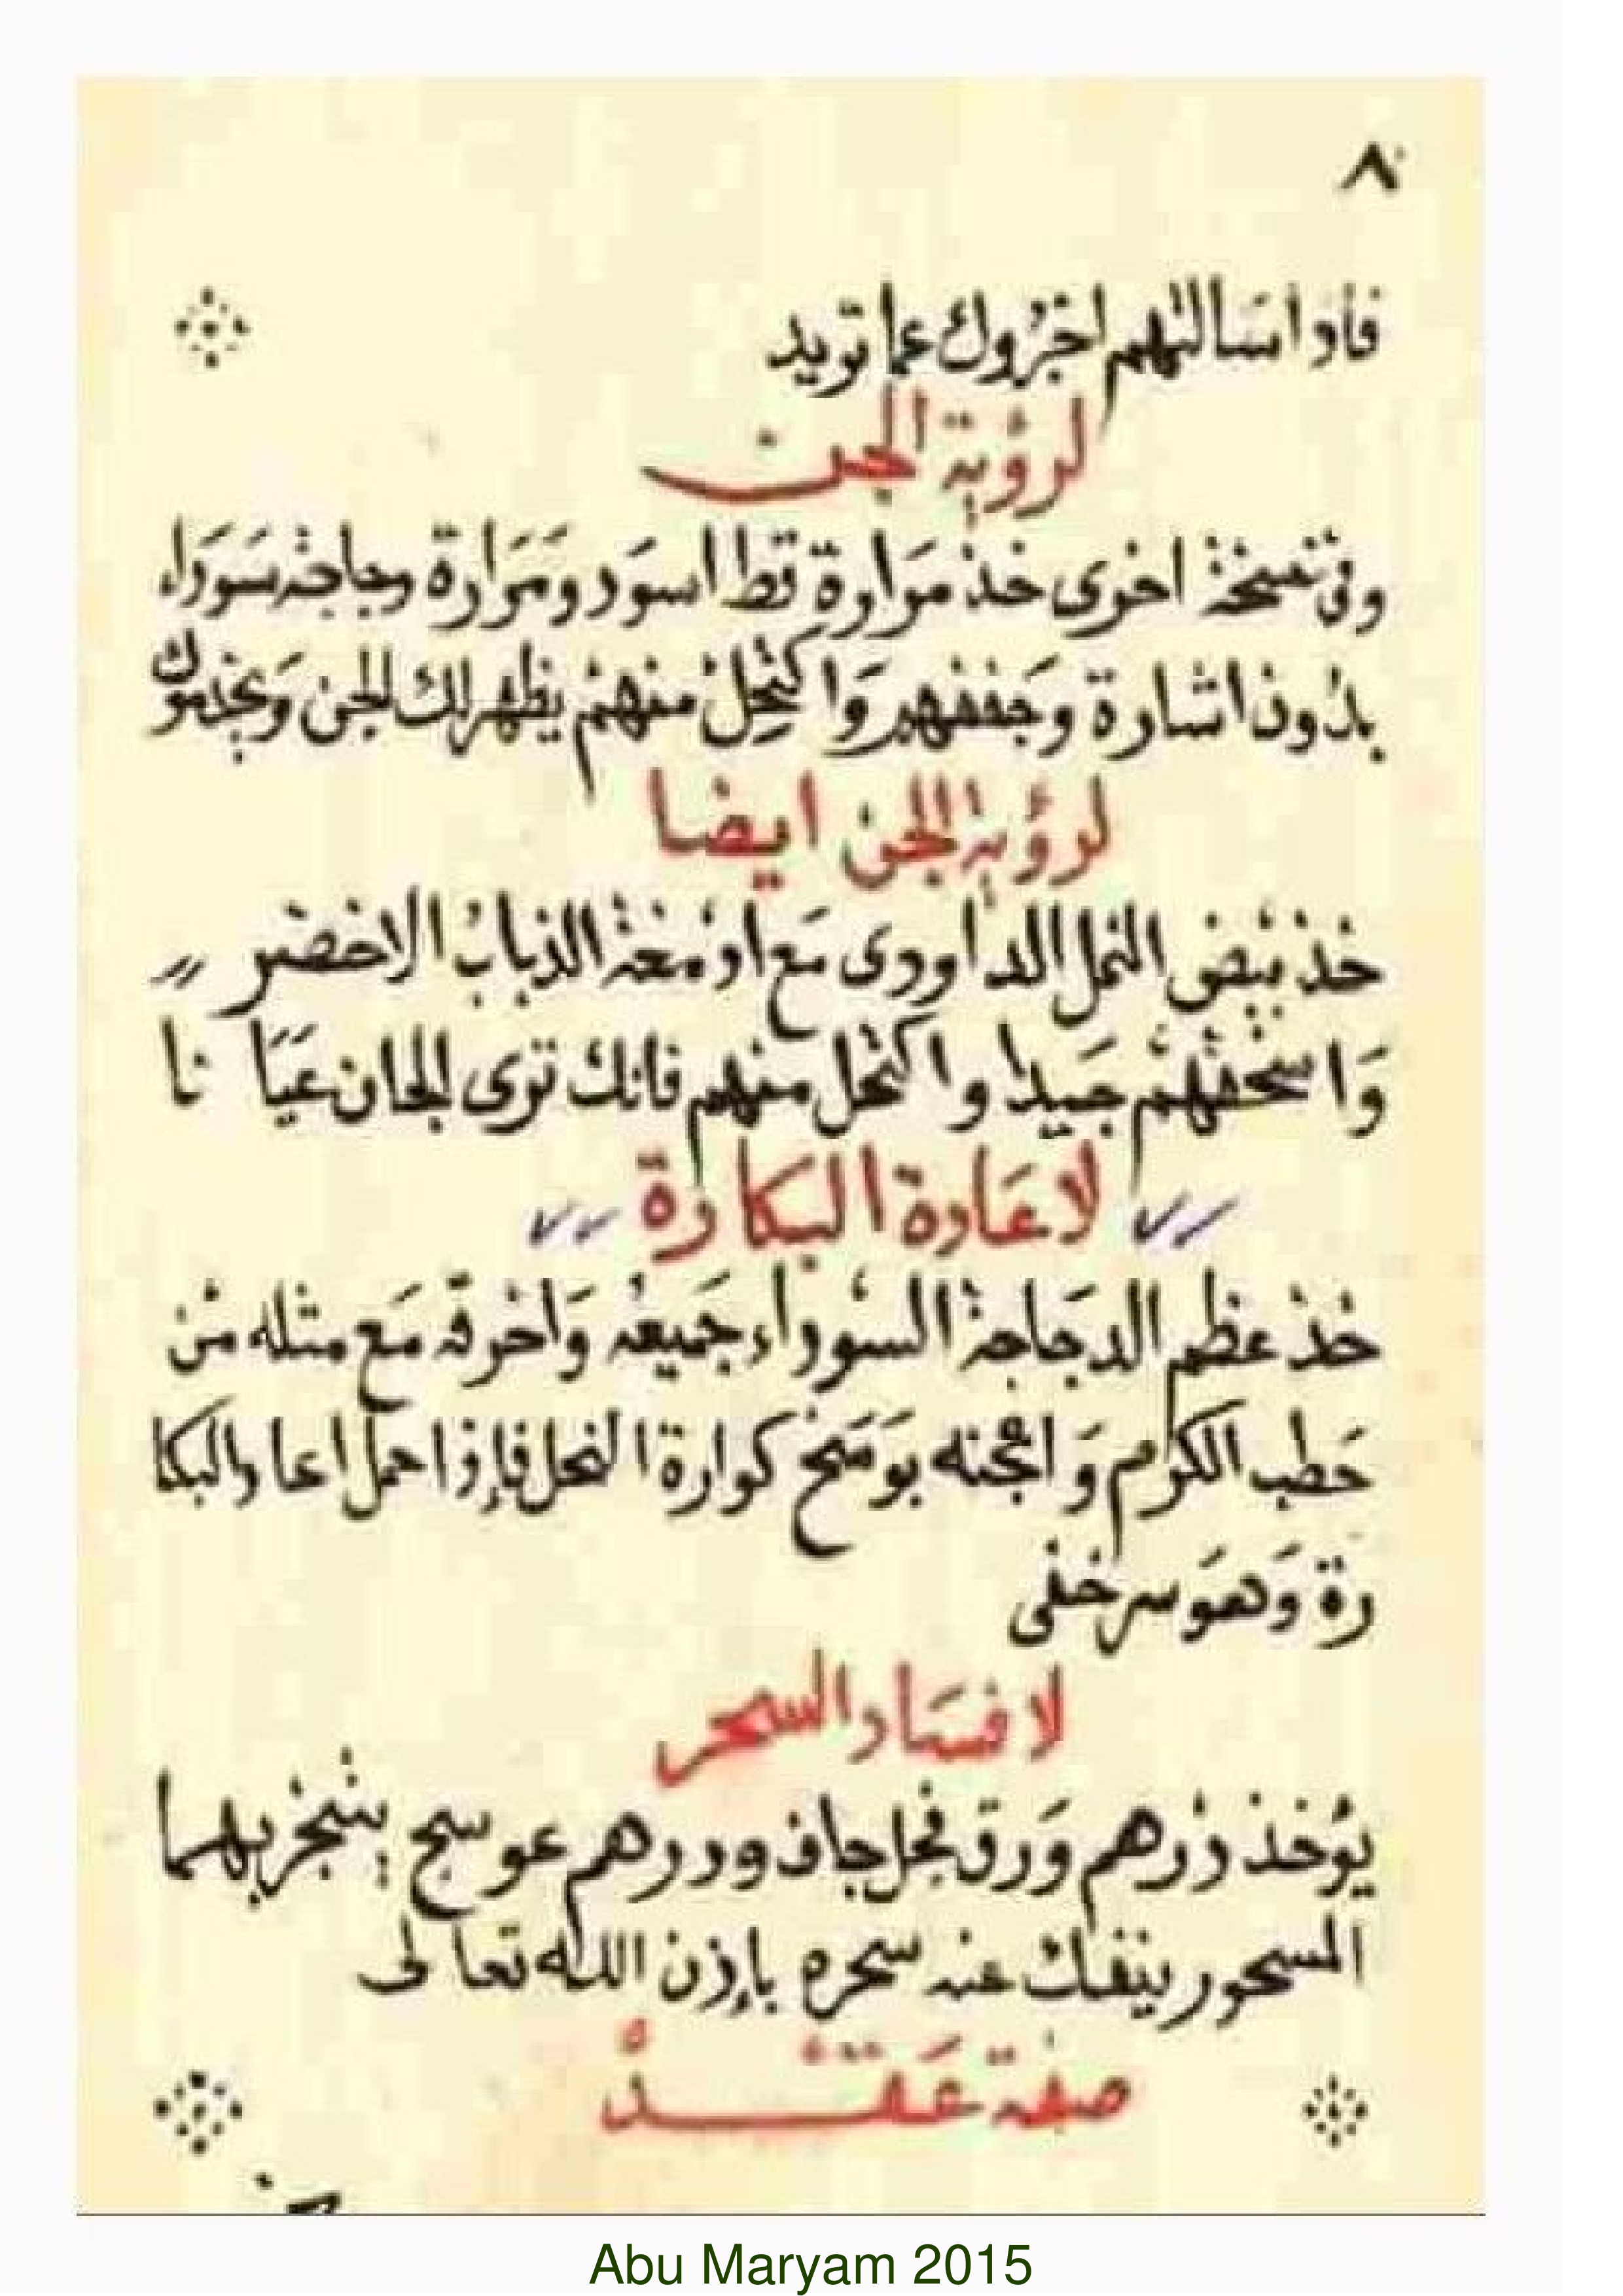 ٨
فاذا سالتهم اخبروك عما تريد
لرؤية الجن
وفى نسخة اخرى خذ مرارة قط اسود ومرارة دجاجة سوداء
بدون اشارة وجففهم واكتحل منهم يظهر لك الجن ويخدموك
لرؤية الجن ايضا
خذ بيض النمل الداوودى مع ادمغة الذباب الاخضر
واسحقهم جيدا واكتحل منهم فانك ترى الجان عيانا
لاعادة البكارة
خذ عظم الدجاجة السوداء جميعه واحرقه مع مثله من
حطب الكرم واعجنه بوسخ كوارة النحل فإذا حمل اعاد البكا
رة وهو سر خفى
لافساد السحر
يؤخذ درهم ورق فجل جاف ودرهم عوسج يتبخر بهما
المسحور ينفك عنه سحره بإذن الله تعالى
صفة عقد
Abu Maryam 2015